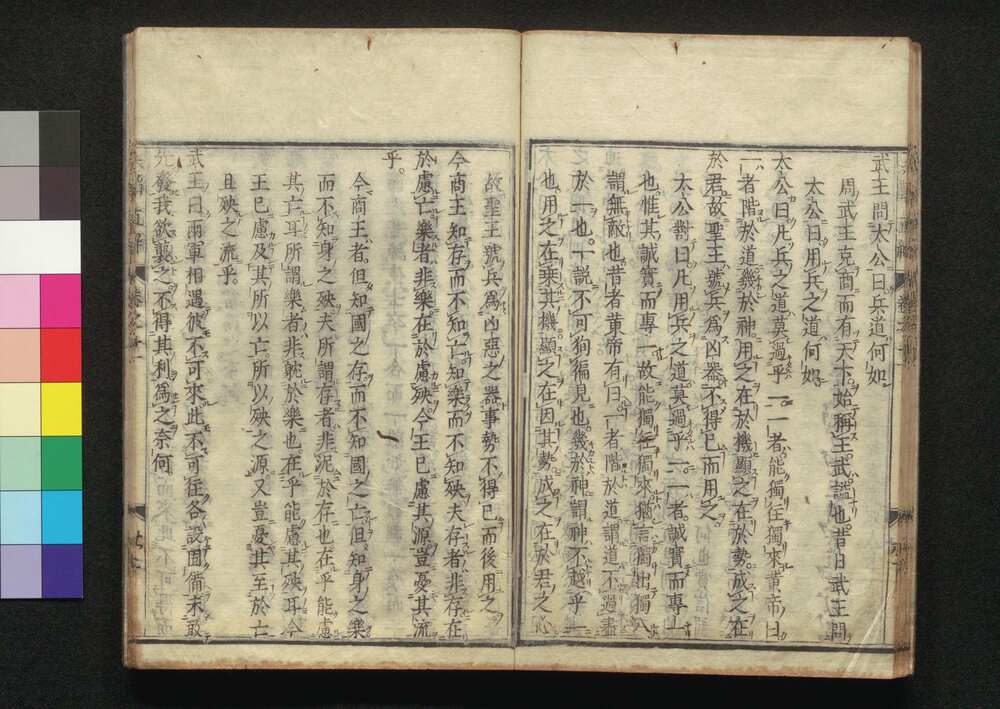 武王問太公曰兵道何如
周武王克商而有天下始稱王武謚也昔日武王問
太公曰用兵之道何如
太公曰凡兵之道莫過乎一一者能獨往獨來黄帝曰
一者階於道幾於神用之在於機顯之在於勢成之在
於君故聖王號兵為凶器不得已而用之
太公對曰凡用兵之道莫過乎一一者誠實而專一
也惟其誠實而專一故能獨往獨來猶言獨出獨入
謂無敵也昔者黄帝有曰一者階於道謂道不過盡
於一也一説不可狥徧見也幾於神謂神不越乎一
也用之在乗其機顯之在因其勢成之在於君之心
故聖王號兵為凶惡之器事勢不得已而後用之
今商王知存而不知亡知樂而不知殃夫存者非存在
於慮亡樂者非樂在於慮殃今王已慮其源豈憂其流
乎
今商王者但知國之存而不知國之亡但知身之樂
而不知身之殃夫所謂存者非泥於存也在乎能慮
其亡耳所謂樂者非躭於樂也在乎能慮其殃耳今
王已慮及其所以亡所以殃之源又豈憂其至於亡
且殃之流乎
武王曰兩軍相遇彼不可來此不可往各設固備未敢
先發我欲襲之不得其利為之奈何